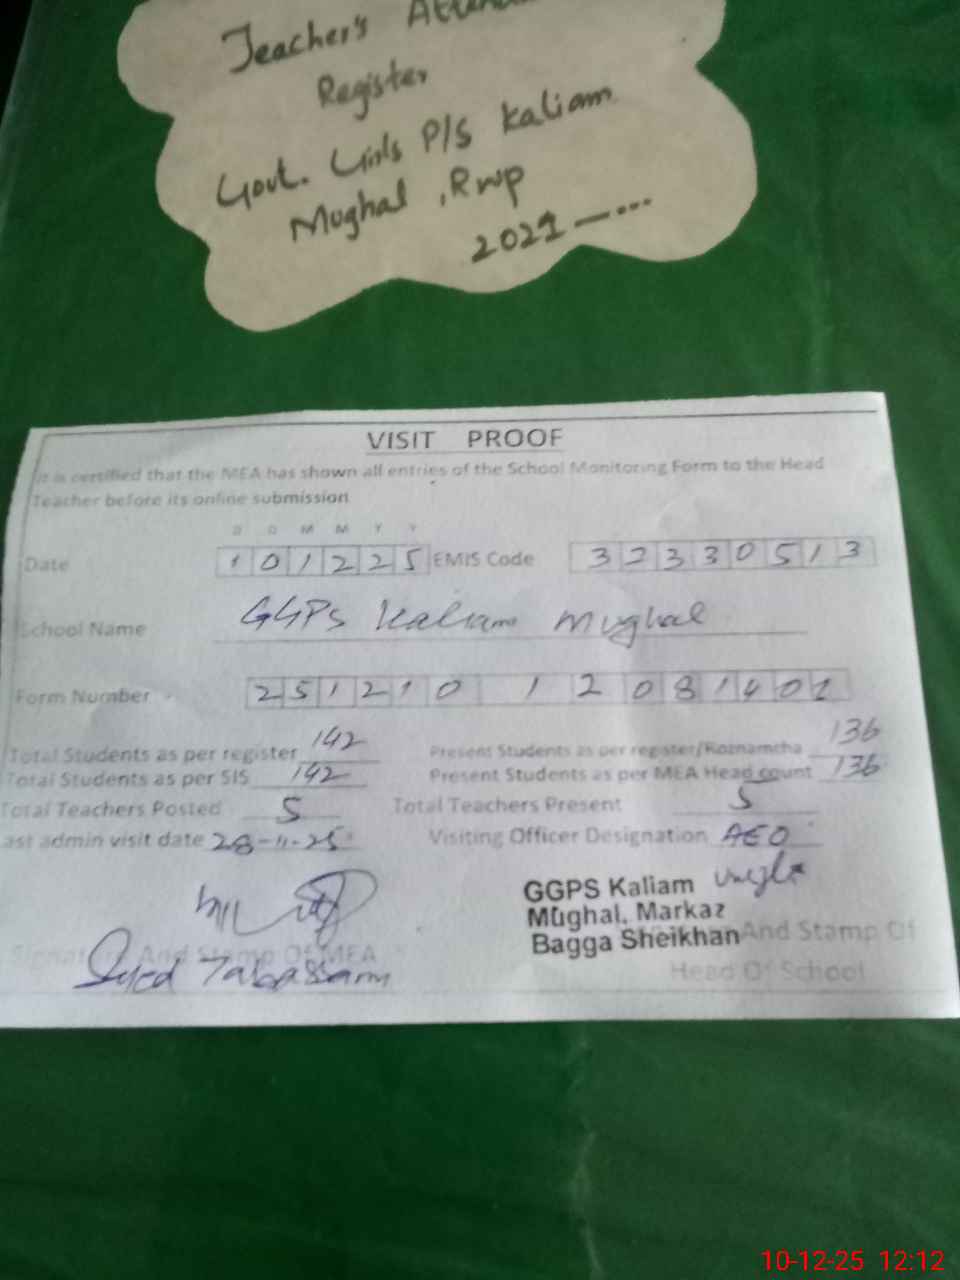 Teacher's
Register
Govt. Girls P/S Kaliam
Mughal, Rwp
2021 — ...
VISIT PROOF
It is certified that the MEA has shown all entries of the School Monitoring Form to the Head
Teacher before its online submission
D D M M Y Y
Date 1 0 1 2 2 5 EMIS Code 3 2 3 3 0 5 1 3
School Name GGPS Kaliam Mughal
Form Number 2 5 1 2 1 0 1 2 0 8 1 4 0 1
Total Students as per register 142 Present Students as per register/Roznamcha 136
Total Students as per SIS 142 Present Students as per MEA Head count 136
Total Teachers Posted 5 Total Teachers Present 5
ast admin visit date 28-11-25 Visiting Officer Designation AEO
GGPS Kaliam
Mughal, Markaz
Bagga Sheikhan And Stamp Of
Signature And Stamp Of MEA
Syed Tabassam
Head Of School
10-12-25 12:12